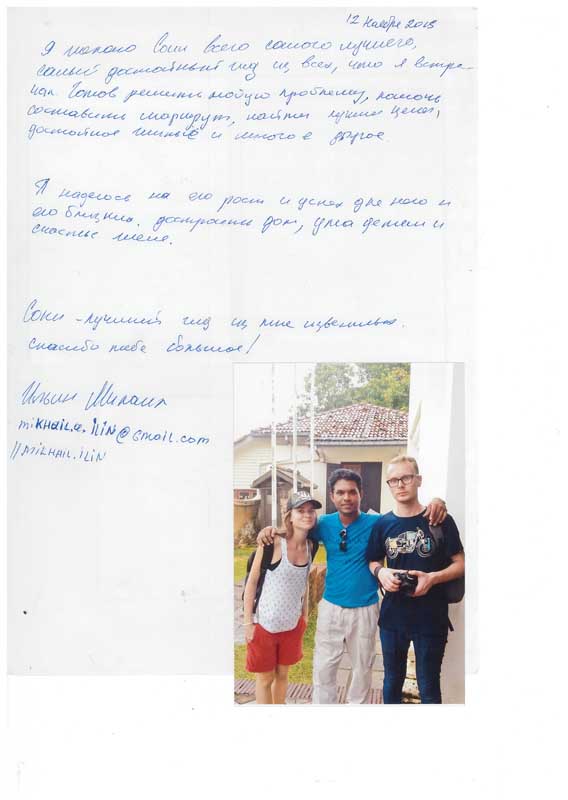 12 Ноября 2018
Я желаю Сони всего самого лучшего,
самый достойный гид из всех, что я встре-
чал. Готов решить любую проблему, помочь
составить маршрут, найти лучшие цены,
достойное жильё и многое другое.
Я надеюсь на его рост и успех для него и
его близких. достроить дом, ума детям и
счастье жене.
Сони - лучший гид из мне известных.
спасибо тебе большое!
Ильин Михаил
mikhail.a.ilin@gmail.com
//mikhail.ilin